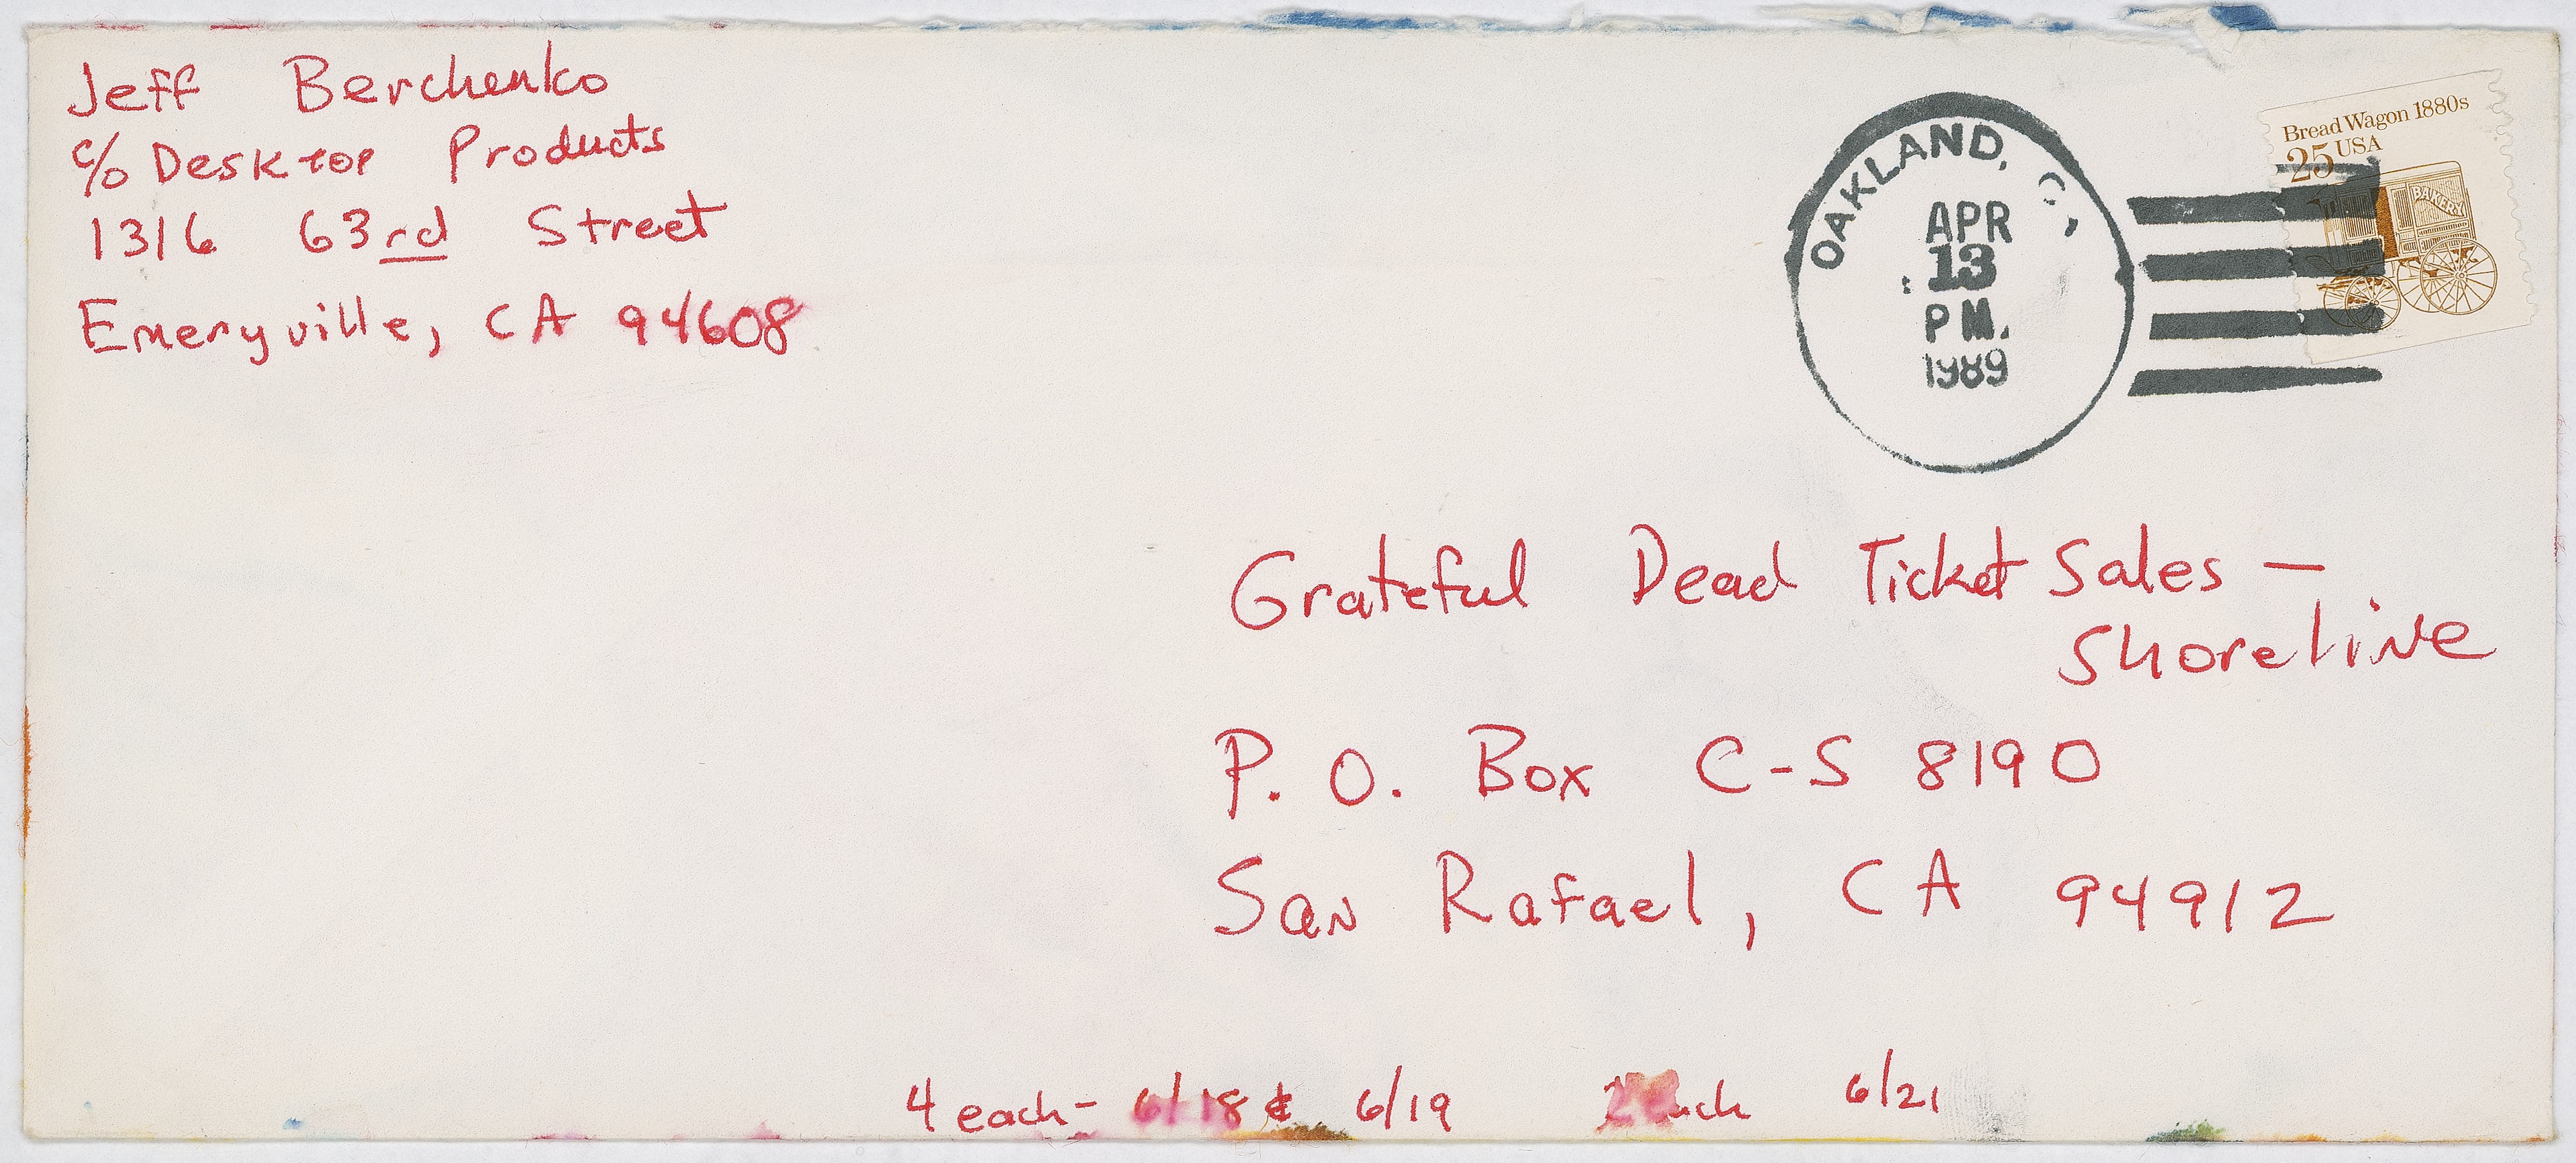 Jeff Berchenko
c/o Desktop Products
1316 63rd Street
Emeryville, CA 94608
OAKLAND, C
APR
13
PM.
1989
Bread Wagon 1880s
25 USA
BAKERY
Grateful Dead Ticket Sales —
Shoreline
P. O. Box C-S 8190
San Rafael, CA 94912
4 each - 6/18 & 6/19 2 each 6/21